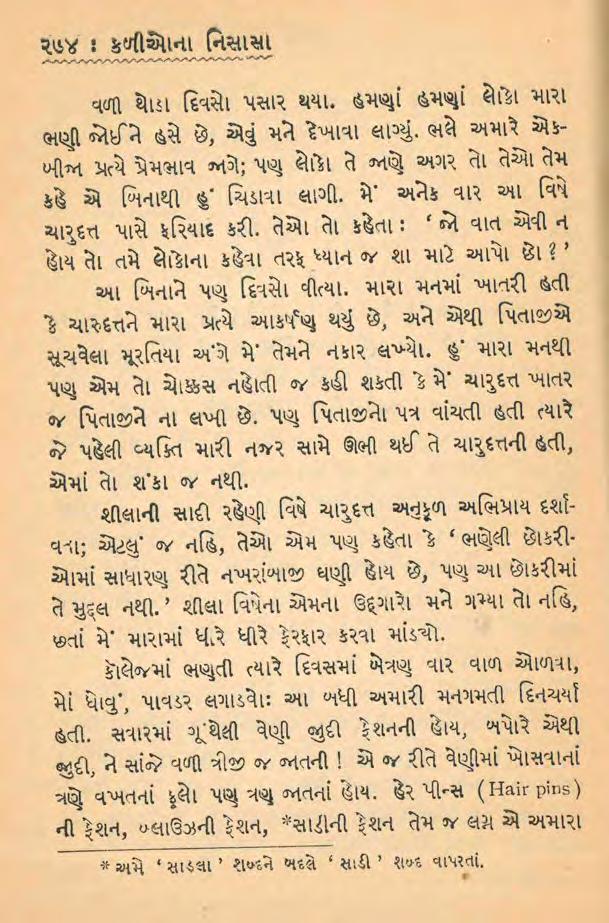 ૨૭૪ : કળીઓના નિસાસા
વળી થોડા દિવસો પસાર થયા. હમણાં હમણાં લોકો મારા
ભણી જોઈને હસે છે, એવું મને દેખાવા લાગ્યું. ભલે અમારે એક-
બીજા પ્રત્યે પ્રેમભાવ જાગે; પણ લોકો તે જાણે અગર તો તેઓ તેમ
કહે એ બિનાથી હું ચિડાવા લાગી. મેં અનેક વાર આ વિષે
ચારુદત્ત પાસે ફરિયાદ કરી. તેઓ તો કહેતા : ‘ જો વાત એવી ન
હોય તો તમે લોકોના કહેવા તરફ ધ્યાન જ શા માટે આપો છો ? ’
આ બિનાને પણ દિવસો વીત્યા. મારા મનમાં ખાતરી હતી
કે ચારુદત્તને મારા પ્રત્યે આકર્ષણ થયું છે, અને એથી પિતાજીએ
સૂચવેલા મૂરતિયા અંગે મેં તેમને નકાર લખ્યો. હું મારા મનથી
પણ એમ તો ચોક્કસ નહોતી જ કહી શકતી કે મેં ચારુદત્ત ખાતર
જ પિતાજીને ના લખી છે. પણ પિતાજીનો પત્ર વાંચતી હતી ત્યારે
જે પહેલી વ્યક્તિ મારી નજર સામે ઊભી થઈ તે ચારુદત્તની હતી,
એમાં તો શંકા જ નથી.
શીલાની સાદી રહેણી વિષે ચારુદત્ત અનુકૂળ અભિપ્રાય દર્શા-
વતા; એટલું જ નહિ, તેઓ એમ પણ કહેતા કે ‘ ભણેલી છોકરી-
ઓમાં સાધારણ રીતે નખરાંબાજી ઘણી હોય છે, પણ આ છોકરીમાં
તે મુદ્દલ નથી. ’ શીલા વિષેના એમના ઉદ્દગારો મને ગમ્યા તો નહિ,
છતાં મેં મારામાં ધીરે ધીરે ફેરફાર કરવા માંડ્યો.
કૉલેજમાં ભણતી ત્યારે દિવસમાં બેત્રણ વાર વાળ ઓળવા,
મોં ધોવું, પાવડર લગાડવો: આ બધી અમારી મનગમતી દિનચર્યા
હતી. સવારમાં ગૂંથેલી વેણી જુદી ફેશનની હોય, બપોરે એથી
જુદી, ને સાંજે વળી ત્રીજી જ જાતની ! એ જ રીતે વેણીમાં ખોસવાનાં
ત્રણે વખતનાં ફૂલો પણ ત્રણ જાતનાં હોય. હેર પીન્સ (Hair pins)
ની ફેશન, બ્લાઉઝની ફેશન, *સાડીની ફેશન તેમ જ લગ્ન એ અમારા
* અમે ‘ સાડલા ’ શબ્દને બદલે ‘ સાડી ’ શબ્દ વાપરતાં.